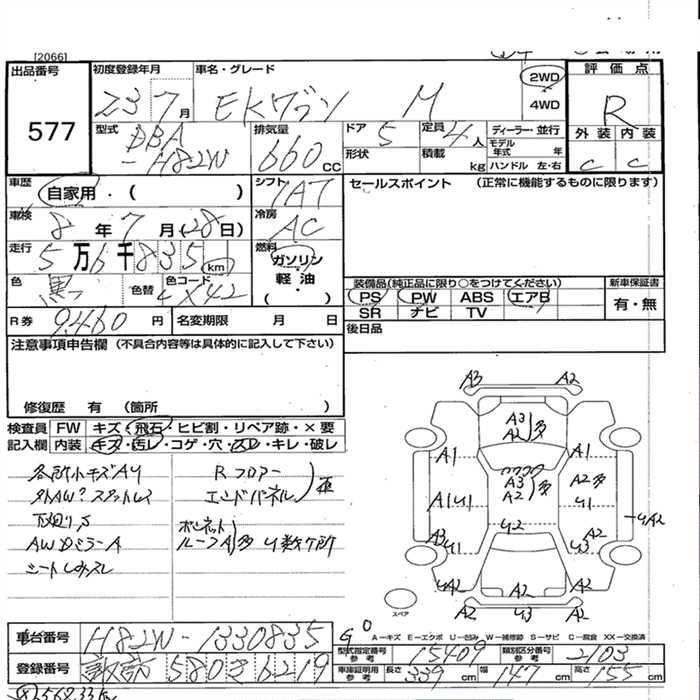 [2066]
出品番号 577
初度登録年月 23 7月
車名・グレード EKワゴン M
2WD
4WD
評価点 R
外装 内装
C C
型式 DBA-H82W
排気量 660cc
ドア 5
形状
定員 4人
積載 kg
ディーラー・並行
モデル年式 年
ハンドル 左・右
車歴 自家用・( )
シフト AT
セールスポイント (正常に機能するものに限ります)
車検 8年 7月(28日)
冷房 AC
走行 5万6千835 km
燃料 ガソリン・軽油・( )
色 黒 色替 色コード X42
装備品(純正品に限り○をつけてください)
PS PW ABS エアB
SR ナビ TV
新車保証書 有・無
R券 9460円
名変期限 月 日
後日品
注意事項申告欄(不具合内容等は具体的に記入して下さい)
修復歴 有 (箇所 )
検査員記入欄
FW キズ・飛石・ヒビ割・リペア跡・×要
内装 キズ・汚レ・コゲ・穴・スレ・キレ・破レ
各所小キズAU
下廻りS
AWDミラーA
シートしみスレ
Rフロアー
エンドパネル
ボンネット
ルーフA多 U数ケ所
A3 A2
A3 A2 多
A1 A1
A3 A2 多
A2多
A1 U1 U1
U2 UA2
A3 U1 A2 U3
UA2 A2 UA2
A2 U3 A2
スペア
G
A−キズ E−エクボ U−凹み W−補修跡 S−サビ C−腐食 XX−交換済
車台番号 H82W-1330835
型式指定番号 参考 15409
類別区分番号 参考 2103
登録番号 580 き 6219
車検証明用 参考 長さ 339cm 幅 147cm 高さ 155cm